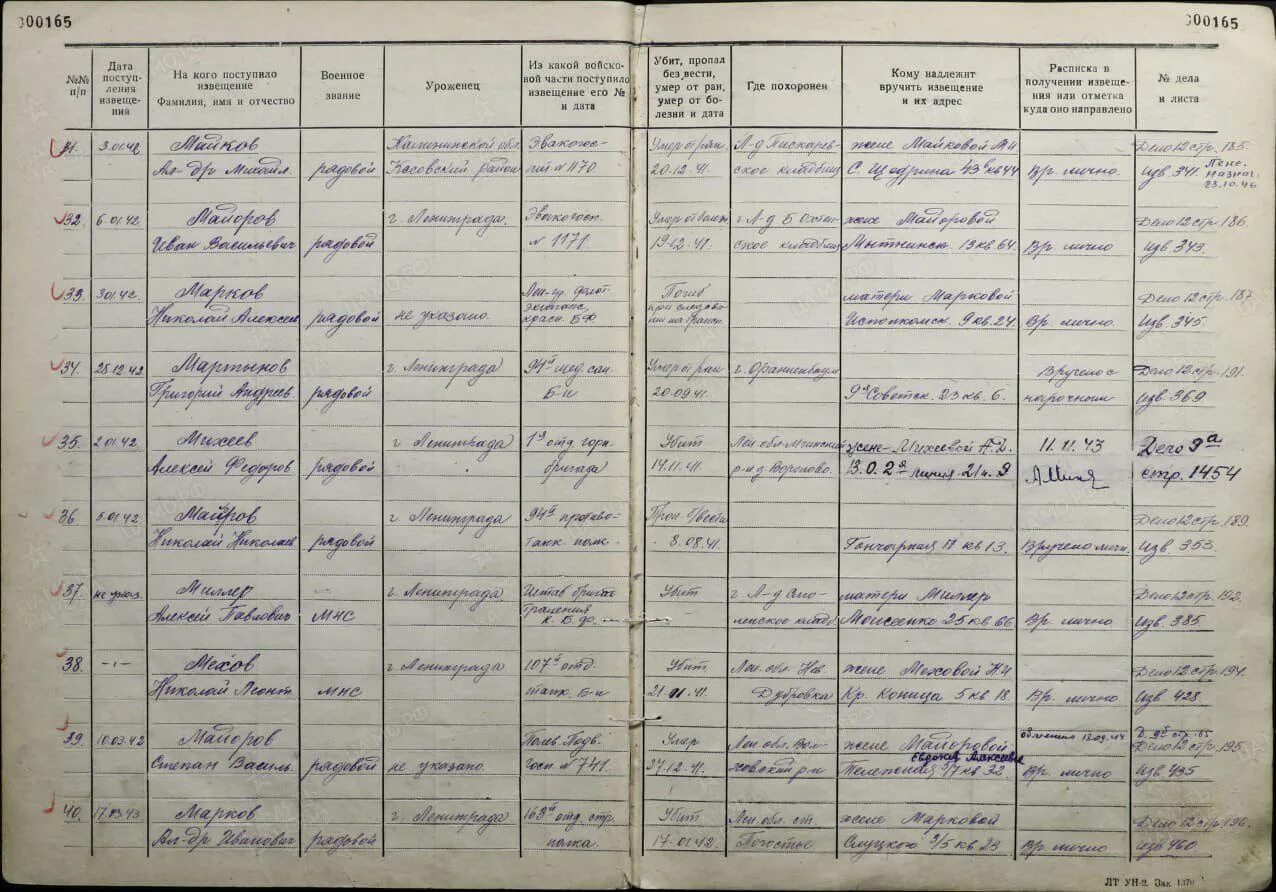 000165
000165
№№ п/п
Дата поступ- ления извеще- ния
На кого поступило извещение Фамилия, имя и отчество
Военное звание
Уроженец
Из какой войско- вой части поступило извещение его № и дата
Убит, пропал без вести, умер от ран, умер от бо- лезни и дата
Где похоронен
Кому надлежит вручить извещение и их адрес
Расписка в получении извеще- ния или отметка куда оно направлено
№ дела и листа
31. 3.01.42 Майков Калининской обл. Эвакогос- Умер от ран Л-д Пискарев- жене Майковой М.И Дело 12 стр. 185
Ал-др Михаил. рядовой Кесовский район пит. №1170 20.12.41. ское кладбище С. Щедрина 43 кв 44 Вр. лично. Изв. 341. Пенс. назнач. 23.10.46
32. 6.01.42 Майоров г. Ленинграда. Эвакогосп. Умер от болезн г. Л-д Б. Охтен- жене Майоровой Дело 12 стр. 186
Иван Васильевич рядовой № 1171. 19.12.41. ское кладбище Мытнинск. 13 кв. 64. Вр. лично Изв. 343.
33. 3.01.42. Марков Лен-гр. флот. Погиб матери Марковой Дело 12 стр. 187
Николай Алексеев рядовой не указано. экипаж, красн. Б.Ф при следова- нии на трансп. Исполкомск. 9 кв. 24. Вр. лично. Изв. 345.
34. 25.12.42 Мартынов г. Ленинграда 94й мед. сан. Умер от ран г. Ораниенбаум Вручено с Дело 12 стр. 191.
Григорий Андреев. рядовой Б-н 20.09.41. 9я Советск. 23 кв. 6. нарочным Изв 369
35. 2.01.42. Михеев г. Ленинграда 1я отд. горн. Убит Лен. обл. Мгинский жене Михеевой А.Д. 11.11.43 Дело 9а
Алексей Федоров рядовой бригада 14.11.41. р-н д. Вороново. В.О. 2я линия 21 к. 9 стр. 1454
36 6.01.42. Майров г. Ленинграда 94й противо- Проп. б/вести Дело 12 стр. 189.
Николай Николаев рядовой танк. полк. 8.08.41. Гончарная 17 кв 13. Вручено личн. Изв. 353
37. не указ. Миллер г. Ленинграда. Штаб бригады Убит г. Л-д Смо- матери Миллер Дело 12 стр. 192.
Алексей Павлович МНС Траления К.Б.Ф. ленское кладб. Моисеенко 25 кв 66 Вр. лично Изв. 385.
38. -"- Мехов г. Ленинграда 107й отд. Убит Лен. обл. Нев. жене Меховой Н.И Дело 12 стр. 194.
Николай Леонт МНС танк. Б-н 21.11.41. Дубровка Кр. Коница 5 кв 18 Вр. лично Изв. 428
39. 10.03.42 Майоров Полев. Подв. Умер Лен. обл. Вол- жене Майоровой Евдокия Алексеевна 13.09.44 Дело 12 стр. 195.
Степан Василь. рядовой не указано. Госп. № 741. 27.12.41. ховский р-н 32. Вр. лично Изв 435
40. 17.03.43 Марков г. Ленинграда 168й отд. стр. Убит Лен. обл. ст. жене Марковой Дело 12 стр. 196.
Ал-др Иванович рядовой полка. 17.01.42. Погостье. Слуцкого 9/5 кв 23 Вр. лично Изв 460
ЛТ УН-2. Зак. 1370